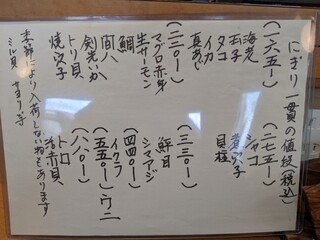 にぎり一貫の値段(税込)
(一六五ー)
海老
玉子
タコ
イカ
真あじ
(二二〇ー)
マグロ赤身
生サーモン
鯛
間八
剣先いか
トリ貝
焼穴子
(二七五ー)
シャコ
煮穴子
貝柱
(三三〇ー)
シマアジ
(四四〇ー)
イクラ
(五五〇ー)ウニ
トロ
活赤貝
季節により入荷しない物もあります
ミル貝 サヨリ 等